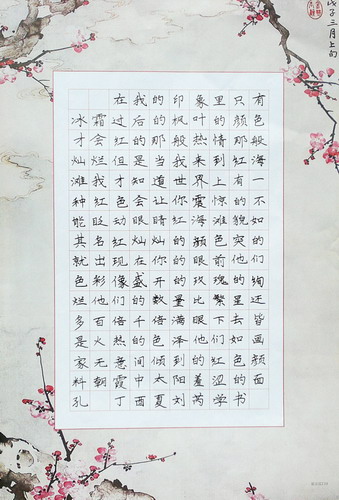 戊子三月上旬
在我的印象里只有
冰霜过后的枫叶的颜色
才会红的那般热情那般
灿烂但是当我来到红海
滩我才知道世界上有一
种红色会让你震惊的不
能眨动眼睛红海滩貌如
其名红灿灿的颜色突的
就出现在你的眼前他们
色彩像盛开的玫瑰的绚
烂他们的数量比繁星还
多百倍千倍满眼下去皆
是火热的色泽他们如画
家无意间倾倒的红色颜
料朝霞中太阳羞涩的面
孔 丁西夏刘芮学书